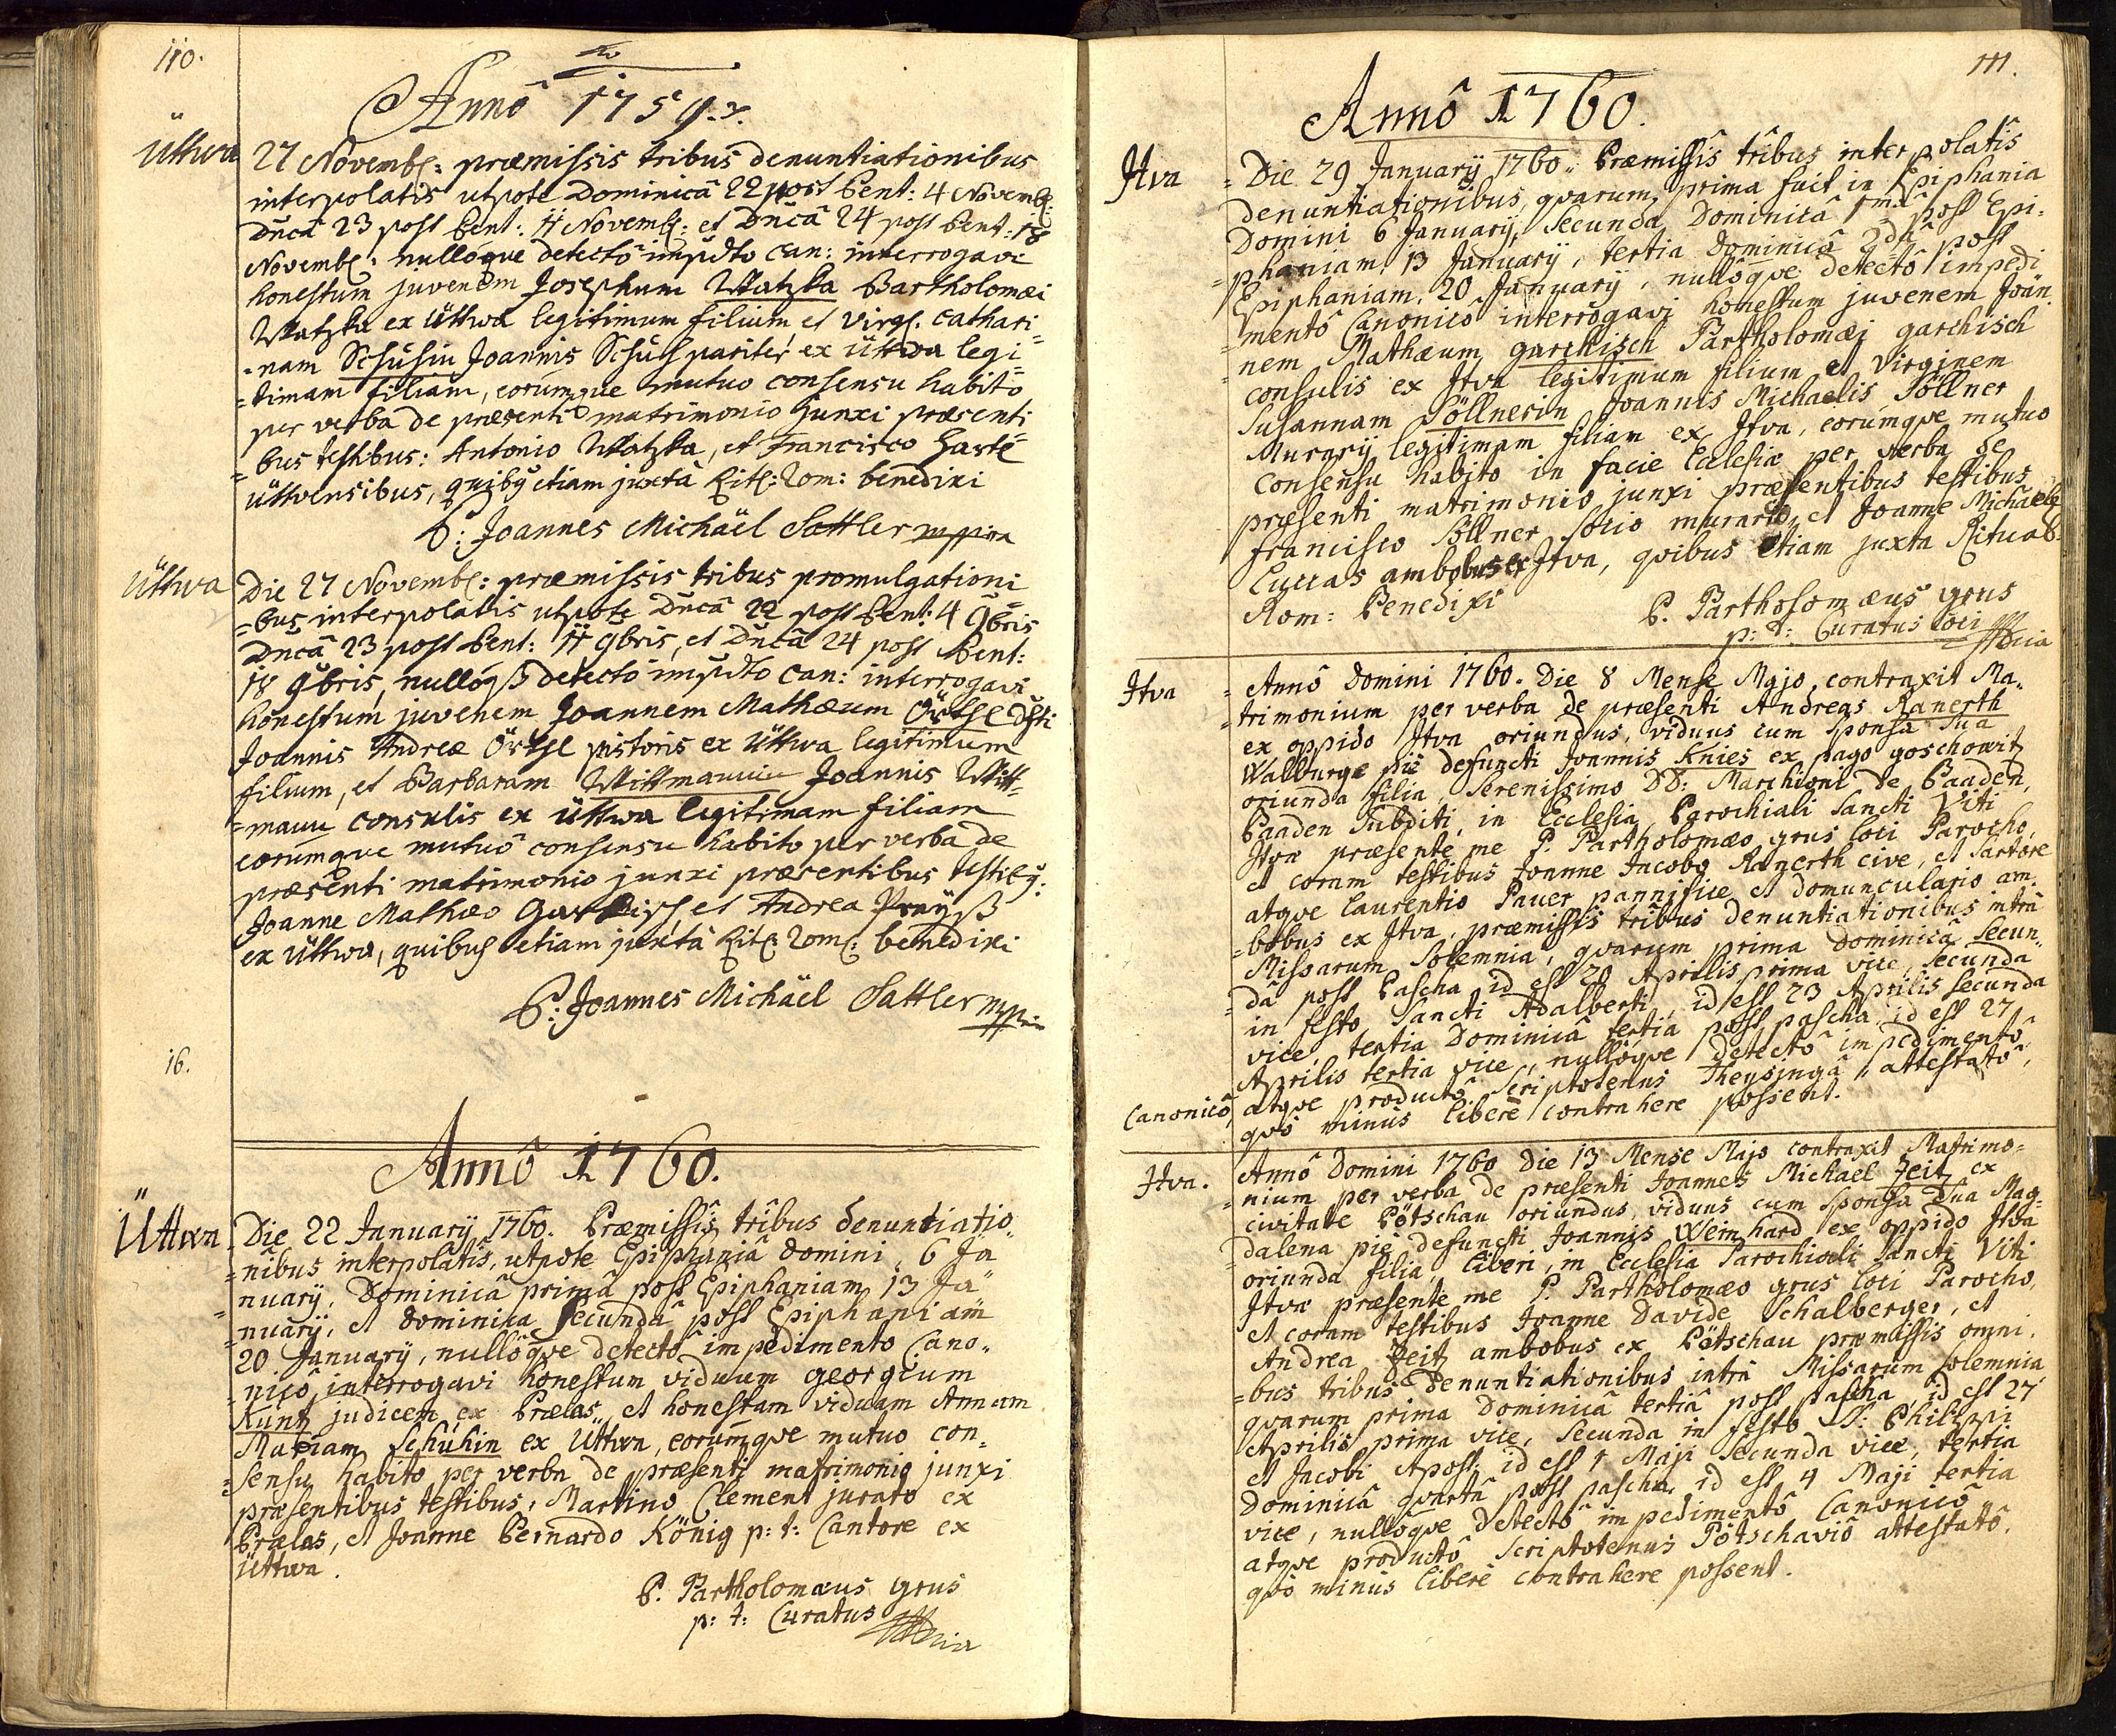 110.
Annô 1759.
Üttwa
27 Novemb: præmissis tribus denuntiationibus
interpolatis utpote Dominicâ 22 post Pent: 4 Novemb:
Dncâ 23 post Pent: 11 Novemb: et Dncâ 24 post Pent: 18
Novemb: nullóque detectô impdto Can: interrogavi
honestum juvenem Josephum Watzka Bartholomæi
Watzka ex Üttwa legitimum filium et Virg: Cathari=
=nam Schuhin Joannis Schuh pariter ex Üttwa legi=
=timam filiam, eorumque mutuo consensu habito
per verba de præsenti matrimonio junxi præsenti
=bus testibus: Antonio Watzka, et Francisco Hartl
üttvensibus, quibg etiam juxta Rit: Rom: benedixi
P: Joannes Michäel Sattler mppria
Üttwa
Die 27 Novemb: præmissis tribus promulgationi
=bus interpolatis utpote Dncâ 22 post Pent: 4 9bris
Dncâ 23 post Pent: 11 9bris, et Dncâ 24 post Pent:
18 9bris, nullóqß detectô impdto Can: interrogavi
honestum juvenem Joannem Mathæum Örthl
Joannis Andreæ Örthl pistoris ex Üttwa legitimum
filium, et Barbaram Wittmannin Joannis Witt=
=mann consulis ex Üttwa legitimam filiam
eorumque mutuô consensu habito per verba de
præsenti matrimonio junxi præsentibus testibg:
Joanne Mathæo Garkisch, et Andrea Preyß
ex Üttwa, quibus etiam juxtâ Rit: Rom: benedixi
P: Joannes Michäel Sattler mppria
16.
Annô 1760.
Üttwa
Die 22 January 1760. Præmissîs tribus denuntiatio=
=nibus interpolatîs, utpote Epiphaniâ Domini, 6 Ja
=nuary, Dominicâ primâ post Epiphaniam, 13 Ja=
=nuary, et dominica secundâ post Epiphaniam
20 January, nullôqve detectô impedimento Cano=
=nicô, interrogavi honestum viduum georgium
Kuntz judicem ex Prælas, et honestam viduam Annam
Mariam Schuhin ex Üttwa, eorumqve mutuo con=
=sensu habito per verba de præsenti matrimonio junxi
præsentibus testibus, Martino Clement jurato ex
Prælas, et Joanne Bernardo König p: t: Cantore ex
Üttwa.
P. Partholomæus grus
p: t: Curatus
111.
Annô 1760.
Jtva
Die 29 January 1760. Præmissîs tribus interpolatîs
denuntiationibus, qvarum, prima fuit in Epiphania
Domini 6 January, Secunda Dominicâ 1mâ post Epi=
=phaniam, 13 January, tertia Dominicâ 2dâ post
Epiphaniam, 20 January, nullôqve detectô impedi
=mentô Canonicô interrogavi honestum juvenem Joan
=nem Mathæum garchisch Partholomæi garchisch
consulis ex Jtva legitimum filium et Virginem
Susannam Söllnerin Joannis Michaelis Söllner
Murary legitimam filiam ex Jtva, eorumqve mutuo
consensu habito in facie Ecclesiæ per verba de
præsenti matrimonio junxi præsentibus testibus
francisco Söllner socio murario, et Joanne Michaele
Luccas ambobus ex Jtva, qvibus etiam juxta Ritual:
Rom: Benedixi
P. Partholomæus grus
p: t: Curatus loci
Jtva
Annô Domini 1760. Die 8 Mense Majo contraxit Ma=
=trimonium per verba de præsenti Andreas Ranerth
ex oppido Jtva oriundus, viduus cum sponsa sua
Walburga piè defuncti Joannis Knies ex pago goschowitz
oriunda filia, Serenissimo DD: Marchioni de Baaden,
Baaden Subditi, in Ecclesia Parochiali Sancti Viti
Jtvæ præsente me P. Partholomæo grus loci Parocho,
et coram testibus Joanne Jacobo Ranerth cive, et Sartore
atqve laurentio Pauer pannifice et domunculario am=
=bobus ex Jtva, præmissîs tribus denuntiationibus intrâ
Missarum Solemnia, qvarum prima Dominicâ Secun=
=dâ post Pascha id est 20 Aprilis prima vice, Secunda
in festo Sancti Adalberti, id est 23 Aprilis Secunda
vice, tertia Dominicâ tertiâ post pascha, id est 27
Aprilis tertia vice, nullôqve detectô impedimentô
Canonicô, atqve productô Scriptotenus Theysingâ attestatô,
qvô minùs liberè contrahere possent.
Jtva.
Annô Domini 1760 Die 13 Mense Majo contraxit Matrimo=
=nium per verba de præsenti Joannes Michael Zeitz ex
civitate Pötschau oriundus, viduus cum sponsa sua Mag=
dalena piè defuncti Joannis Weinhard ex oppido Jtva
oriunda filia, liberi, in Ecclesia Parochiali Sancti Viti
Jtvæ præsente me P. Partholomæo grus loci Parocho,
et coram testibus Joanne Davide Schalberger, et
Andrea Zeitz ambobus ex Pötschau præmissîs omni=
=bus tribus denuntiationibus intrâ Missarum Solemnia
qvarum prima Dominicâ tertiâ post pascha, id est 27
Aprilis prima vice, Secunda in festo SS: Philippi
et Jacobi Apost: id est 1 Maji Secunda vice, tertia
Dominicâ qvartâ post pascha, id est 4 Maji tertia
vice, nullôqve detectô impedimentô Canonicô
atqve productô Scriptotenus Pötschaviô attestatô,
qvô minùs liberè contrahere possent.